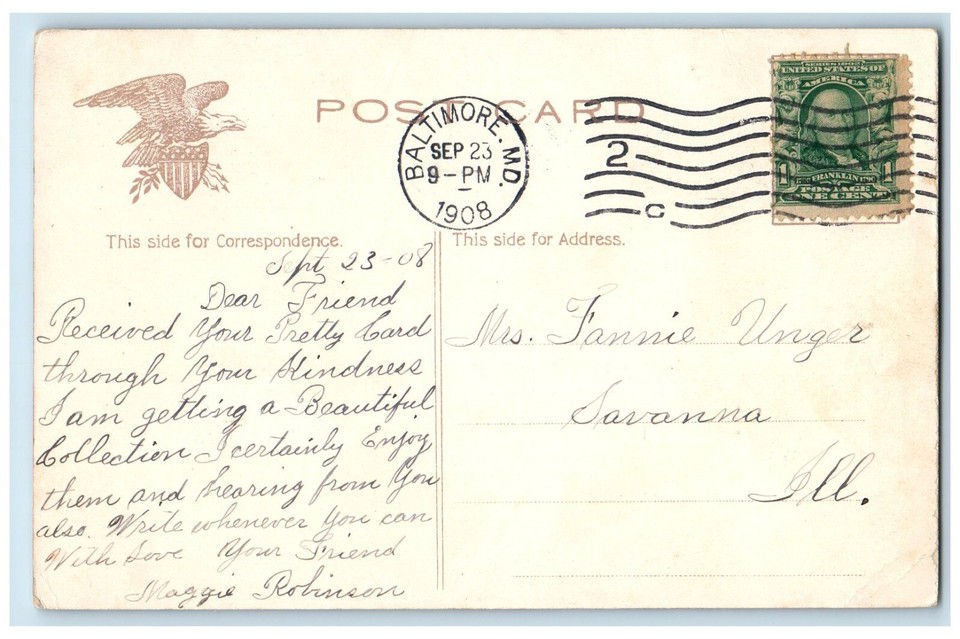 POST CARD
BALTIMORE. MD.
SEP 23
9-PM
1908
2
C
SERIES 1902
UNITED STATES OF
AMERICA
1 FRANKLIN 1
POSTAGE
ONE CENT
This side for Correspondence.
This side for Address.
Sept 23-08
Dear Friend
Received Your Pretty Card
through Your Kindness
I am getting a Beautiful
Collection I certainly Enjoy
them and hearing from You
also. Write whenever You can
With Love Your Friend
Maggie Robinson
Mrs. Fannie Unger
Savanna
Ill.